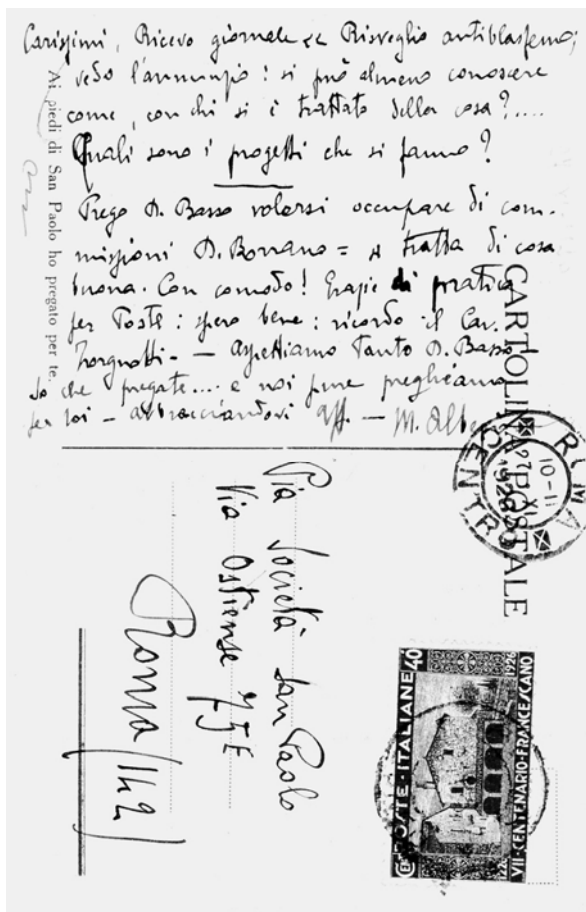 Carissimi, Ricevo giornale e Risveglio antiblasfemo;
vedo l'annunzio: si può almeno conoscere
come, con chi si è trattato della cosa?....
Quali sono i progetti che si fanno?
Prego D. Basso volersi occupare di com-
missioni D. Borrano = si tratta di cosa
buona. Con comodo! Grazie di pratica
per Poste: spero bene: ricordo il Cav.
— Aspettiamo tanto D. Basso
So che pregate.... e noi pure preghiamo
per voi - abbracciandovi aff. - M. Alber
Ai piedi di San Paolo ho pregato per te.
CARTOLINA POSTALE
ROMA
CENTRO
10-11
XI
1926
Pia Società San Paolo
Via Ostiense 75E
Roma (142)
POSTE·ITALIANE
40
CEN
1226
1926
VII·CENTENARIO·FRANCESCANO